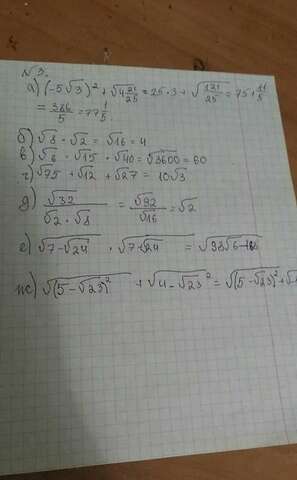 № 3.
а) (-5√3)² + √4 21/25 = 25·3 + √121/25 = 75 + 11/5
= 386/5 = 77 1/5.
б) √8 · √2 = √16 = 4
в) √6 · √15 · √40 = √3600 = 60
г) √75 + √12 + √27 = 10√3
д) √32 / √2 · √8 = √32 / √16 = √2
е) √7-√24 · √7+√24 =
ж) √(5-√23)² + √4-√23² = √(5-√23)² + √